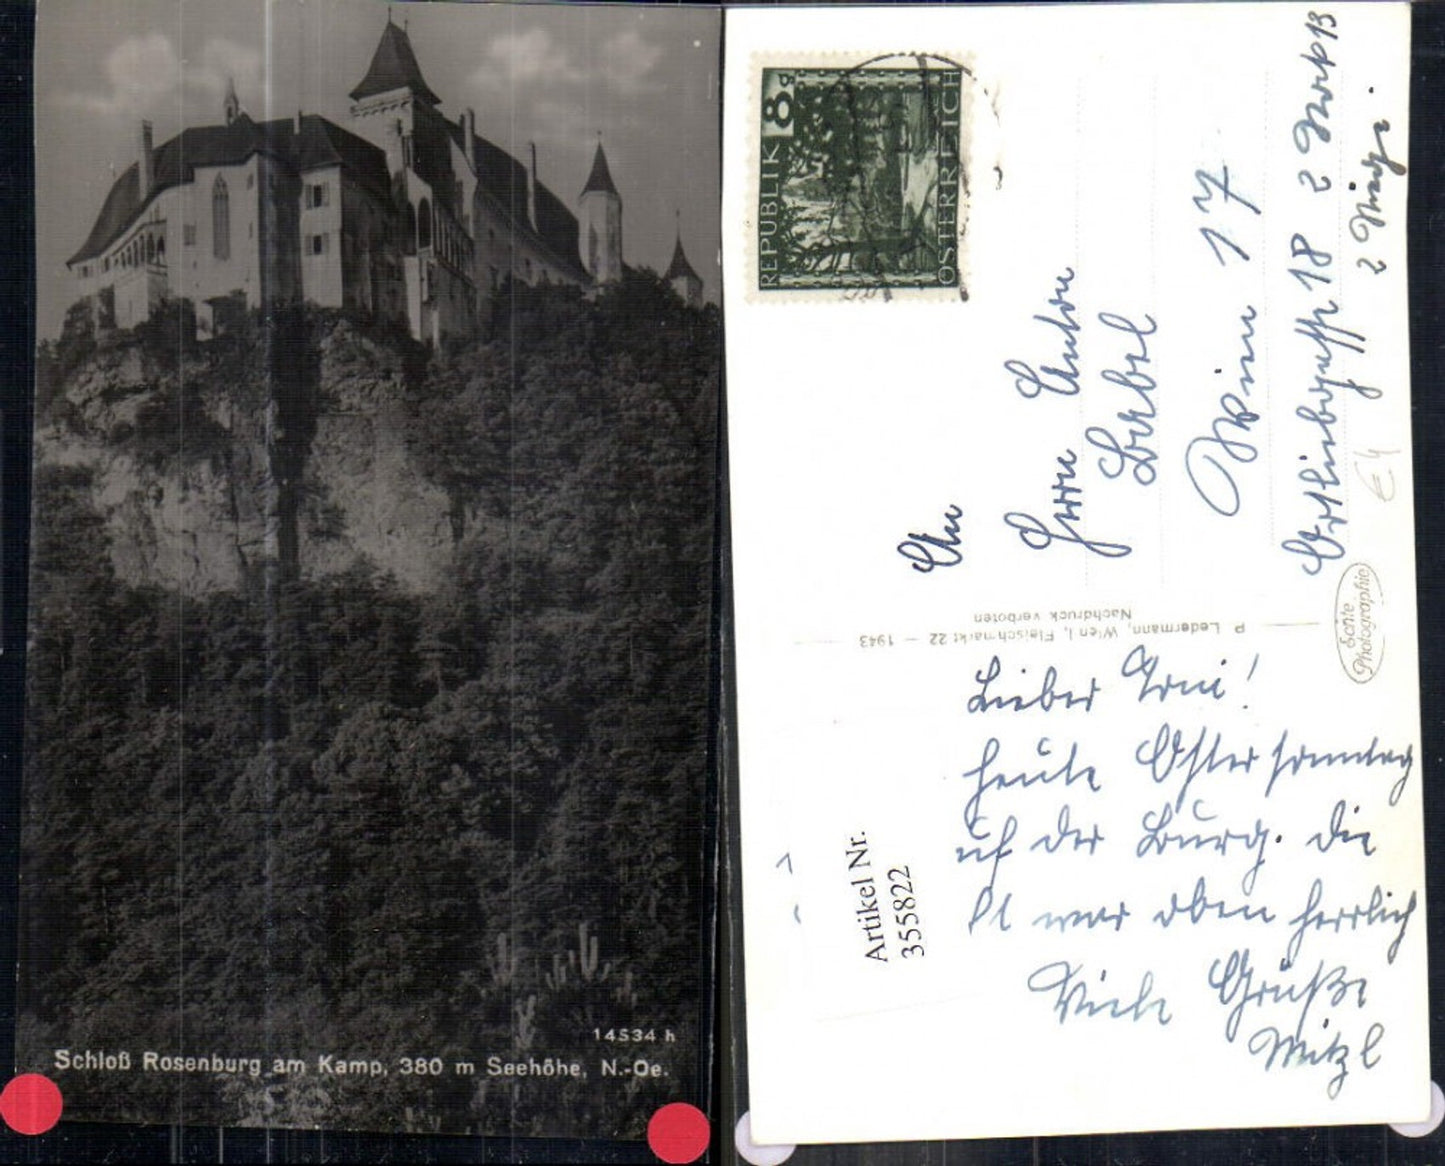 14534 h
Schloß Rosenburg am Kamp, 380 m Seehöhe, N.-Oe.
REPUBLIK 8g
ÖSTERREICH
An
Herrn Anton
Wien 17
18 2 Stock 13
2 Stiege.
€4
P. Ledermann, Wien I, Fleischmarkt 22 — 1943
Nachdruck verboten
Echte
Photographie
Lieber Toni!
heute Ostersonntag
auf der Burg. Die
ist war oben herrlich
Viele Grüße
Mitzl
Artikel Nr.
355822